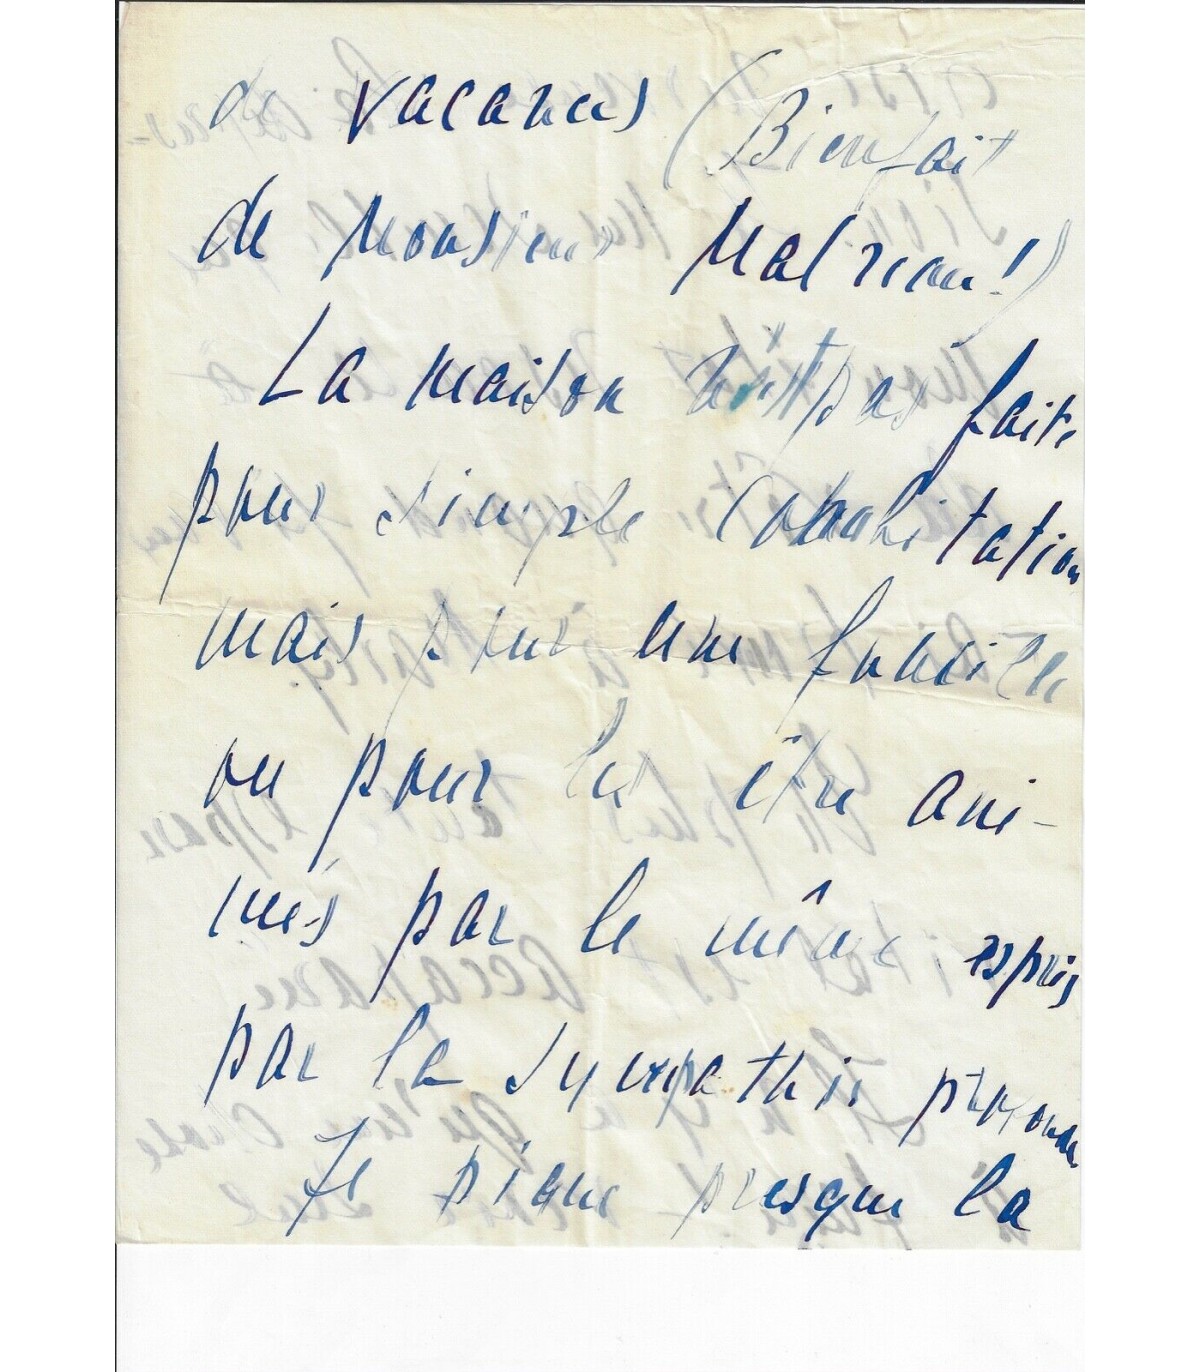 de vacances (Bienfait
de Monsieur Malraux!)
La maison n'est pas faite
pour simple cohabitation
mais pour une famille
ou pour les être ani-
més par le même esprit
par la sympathie profonde
Je signe presque la